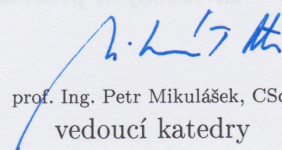 prof. Ing. Petr Mikulášek, CSc
vedoucí katedry